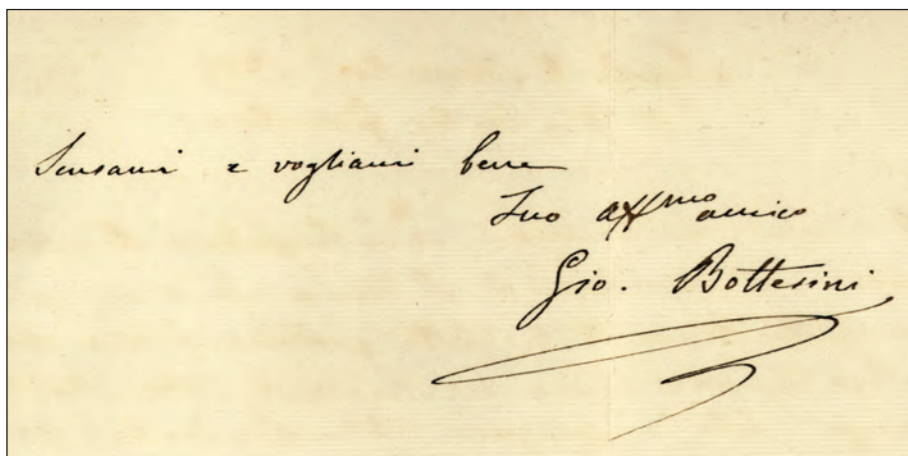 Scusami e vogliami bene
Tuo aff.mo amico
Gio. Bottesini